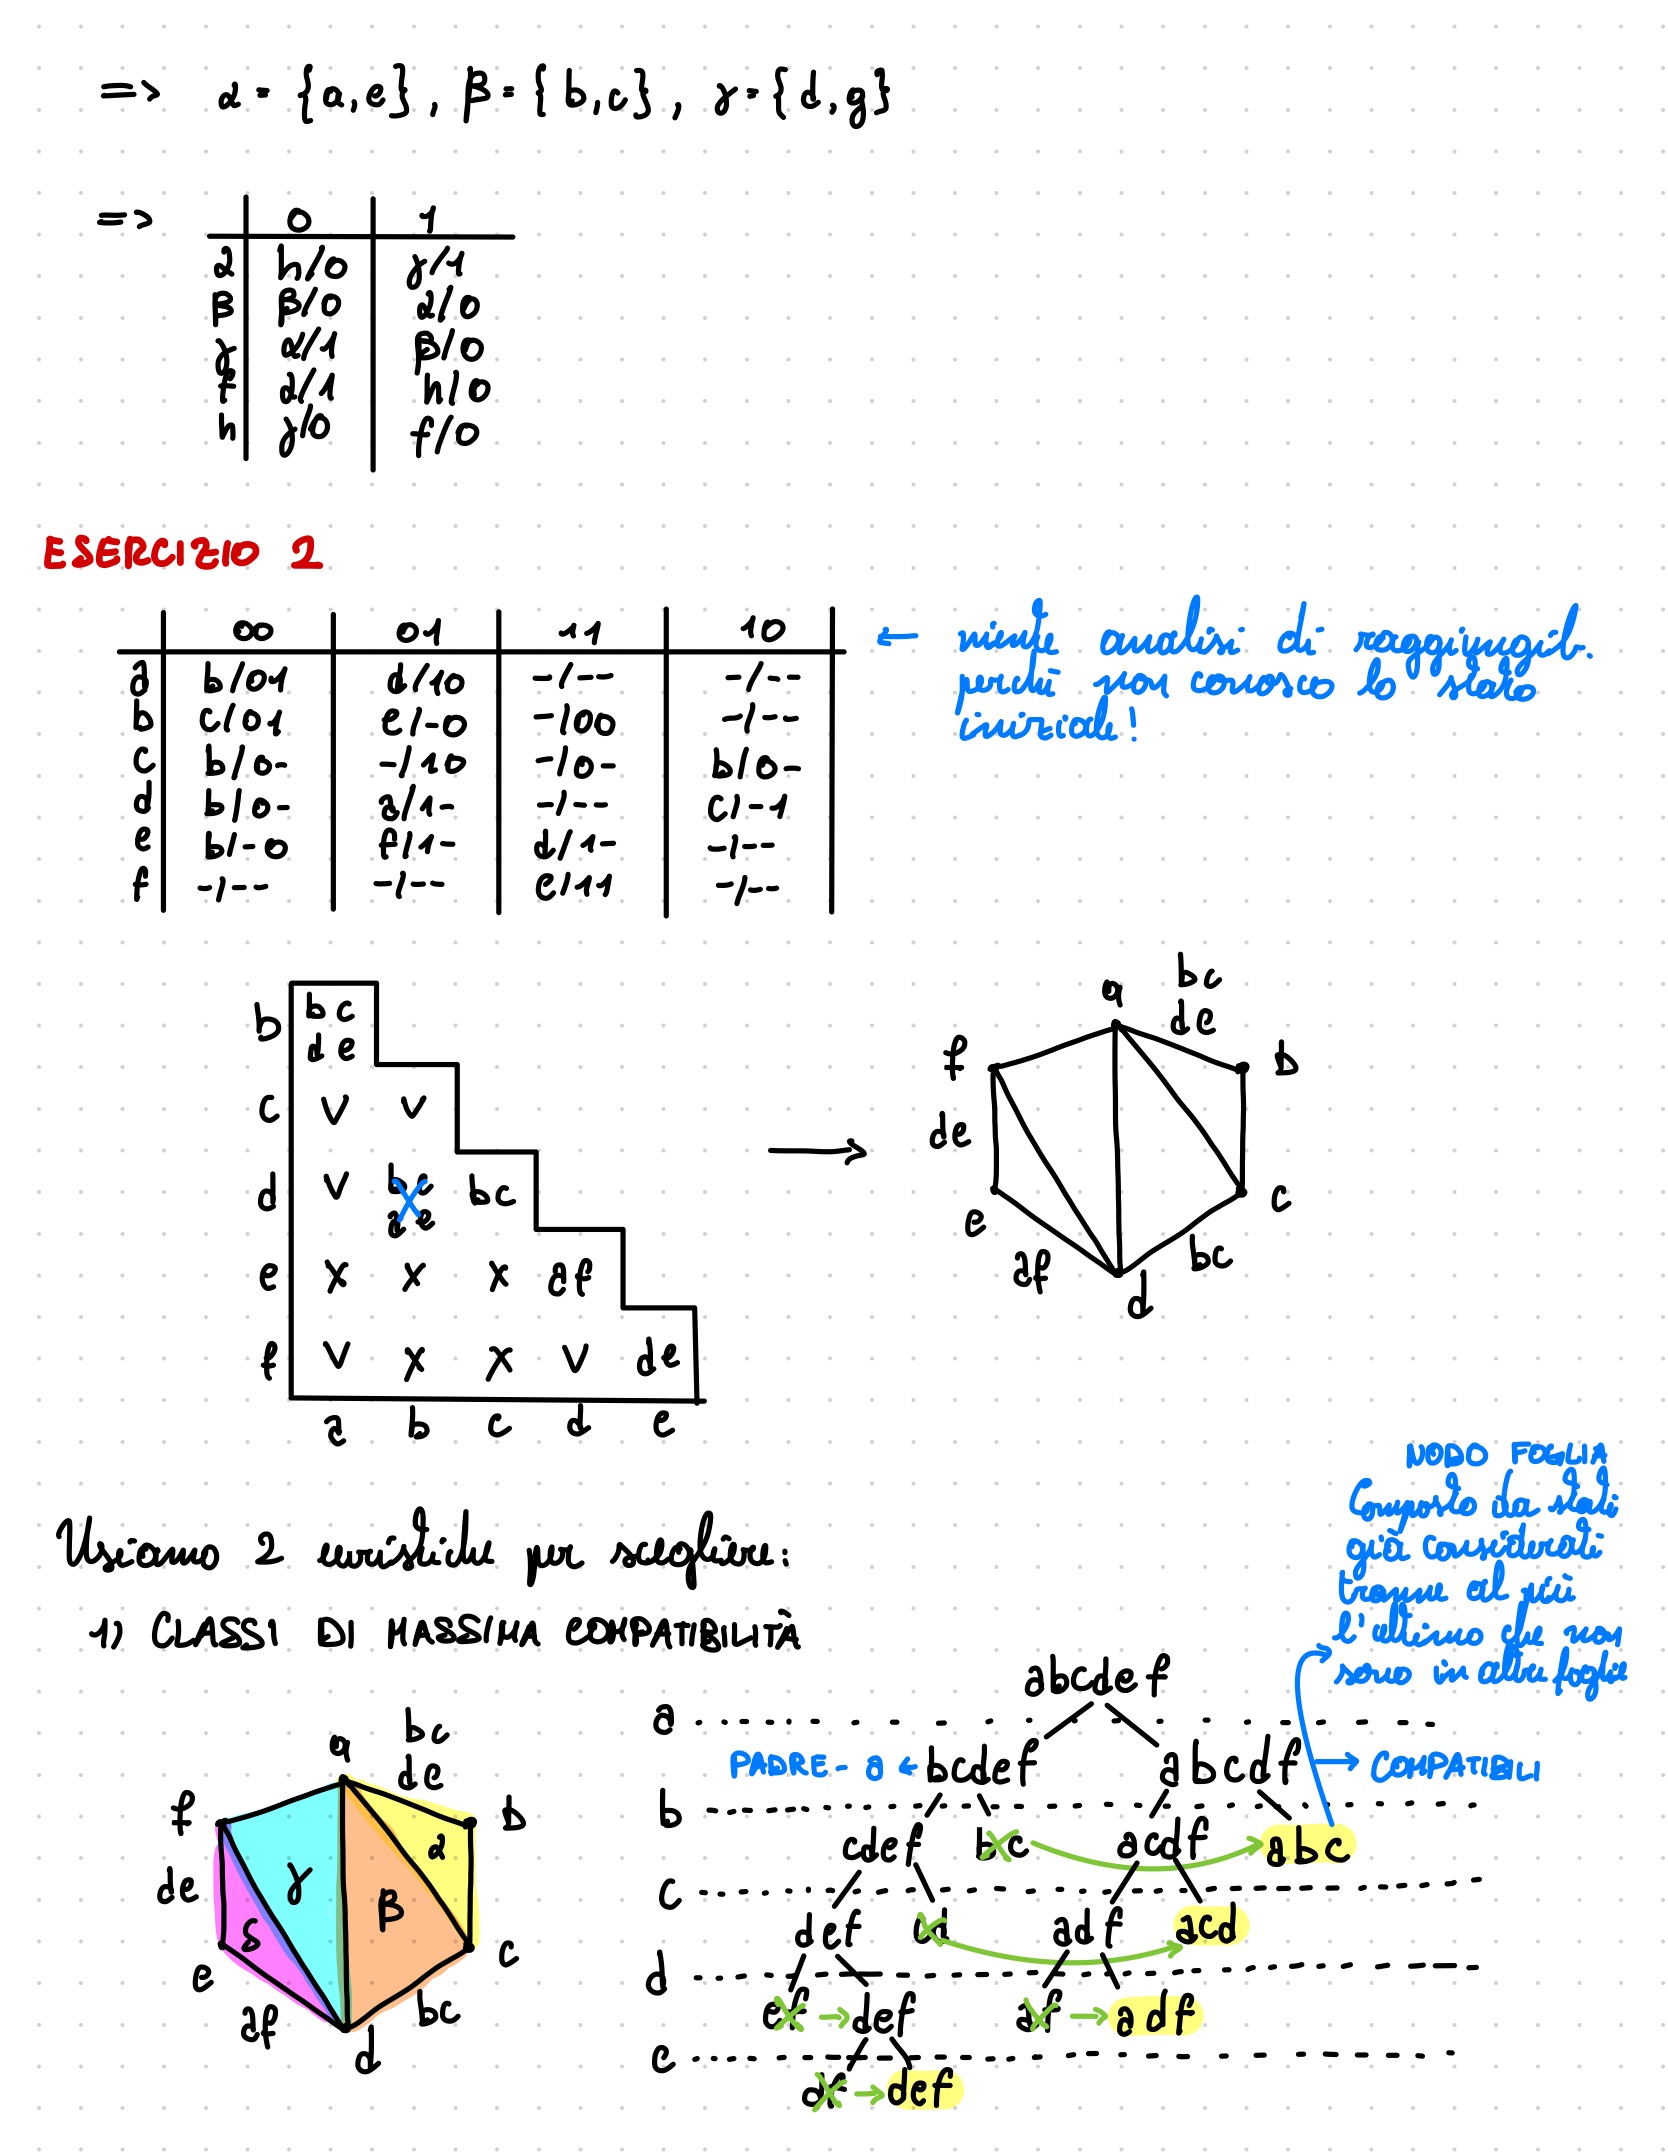 => α = {a,e}, β = {b,c}, γ = {d,g}
=> 0 1
α h/0 γ/1
β β/0 α/0
γ α/1 β/0
f α/1 h/0
h γ/0 f/0
ESERCIZIO 2
00 01 11 10
a b/01 d/10 -/-- -/--
b c/01 e/-0 -/00 -/--
c b/0- -/10 -/0- b/0-
d b/0- a/1- -/-- c/-1
e b/-0 f/1- d/1- -/--
f -/-- -/-- e/11 -/--
← niente analisi di raggiungib.
perchè non conosco lo stato
iniziale!
b bc
de
c V V
d V bc bc
ae
e X X X af
f V X X V de
a b c d e
→
a bc
de
f b
de
e c
af bc
d
Usiamo 2 euristiche per scegliere:
1) CLASSI DI MASSIMA COMPATIBILITÀ
NODO FOGLIA
Composto da stati
già considerati
tranne al più
l'ultimo che non
sono in altre foglie
a bc
de
f b
α
de γ β
δ
e c
af bc
d
abcdef
a
PADRE - a ← bcdef abcdf → COMPATIBILI
b
cdef bc acdf abc
c
def cd adf acd
d
ef → def af → adf
e
df → def